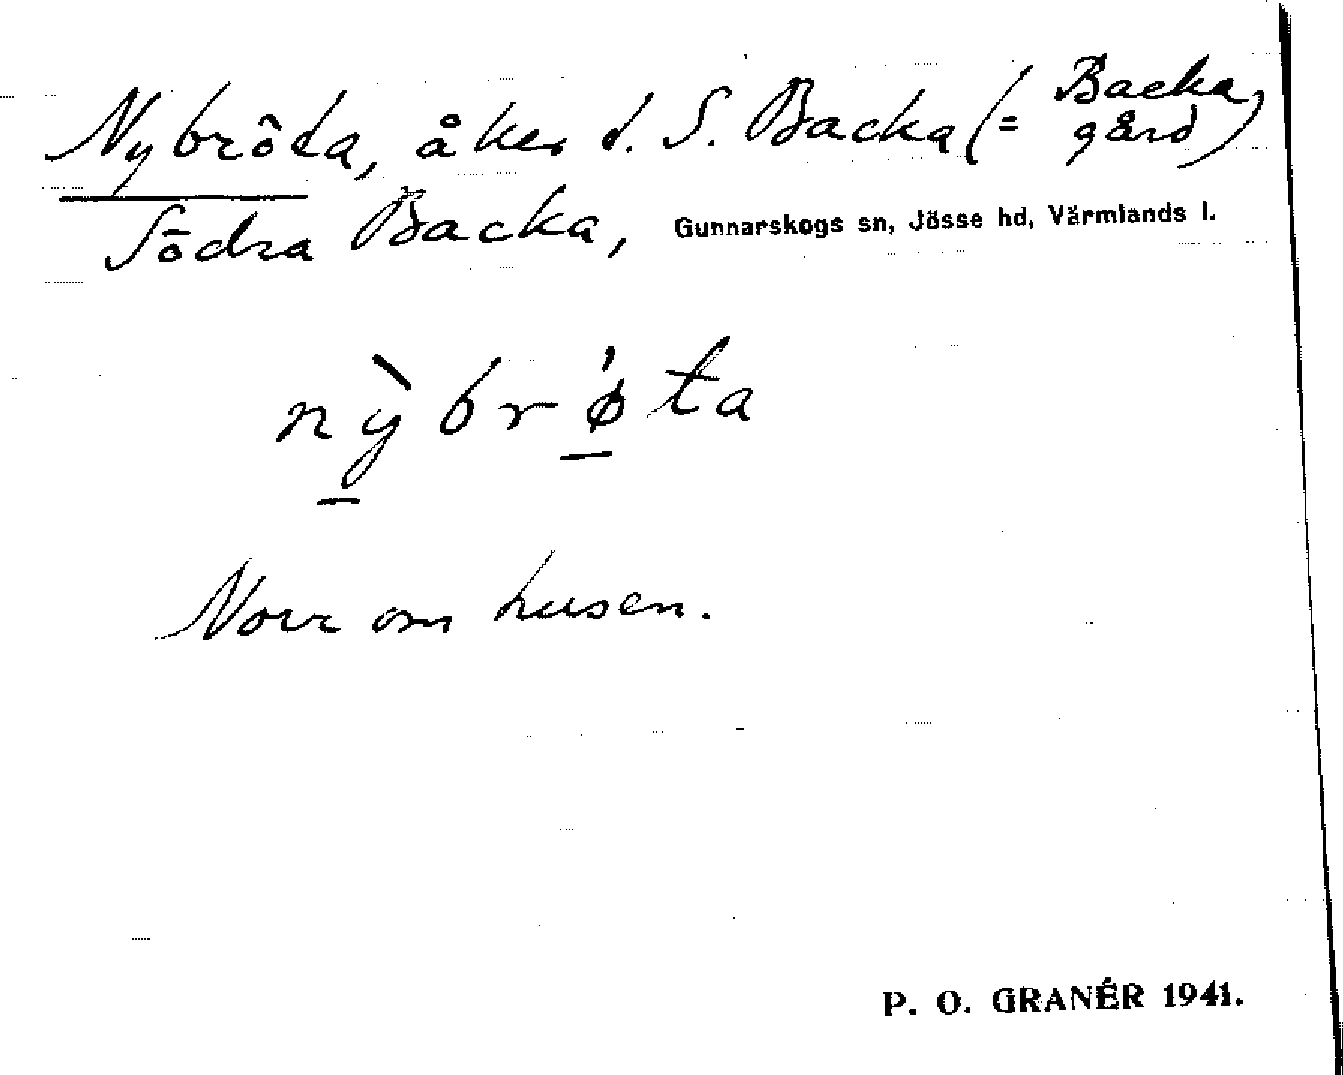 Nybröta, åker t. S. Backa (= Backa gård)
Södra Backa, Gunnarskogs sn, Jösse hd, Värmlands l.
nỳbrǿta
Norr om husen.
P. O. GRANÉR 1941.